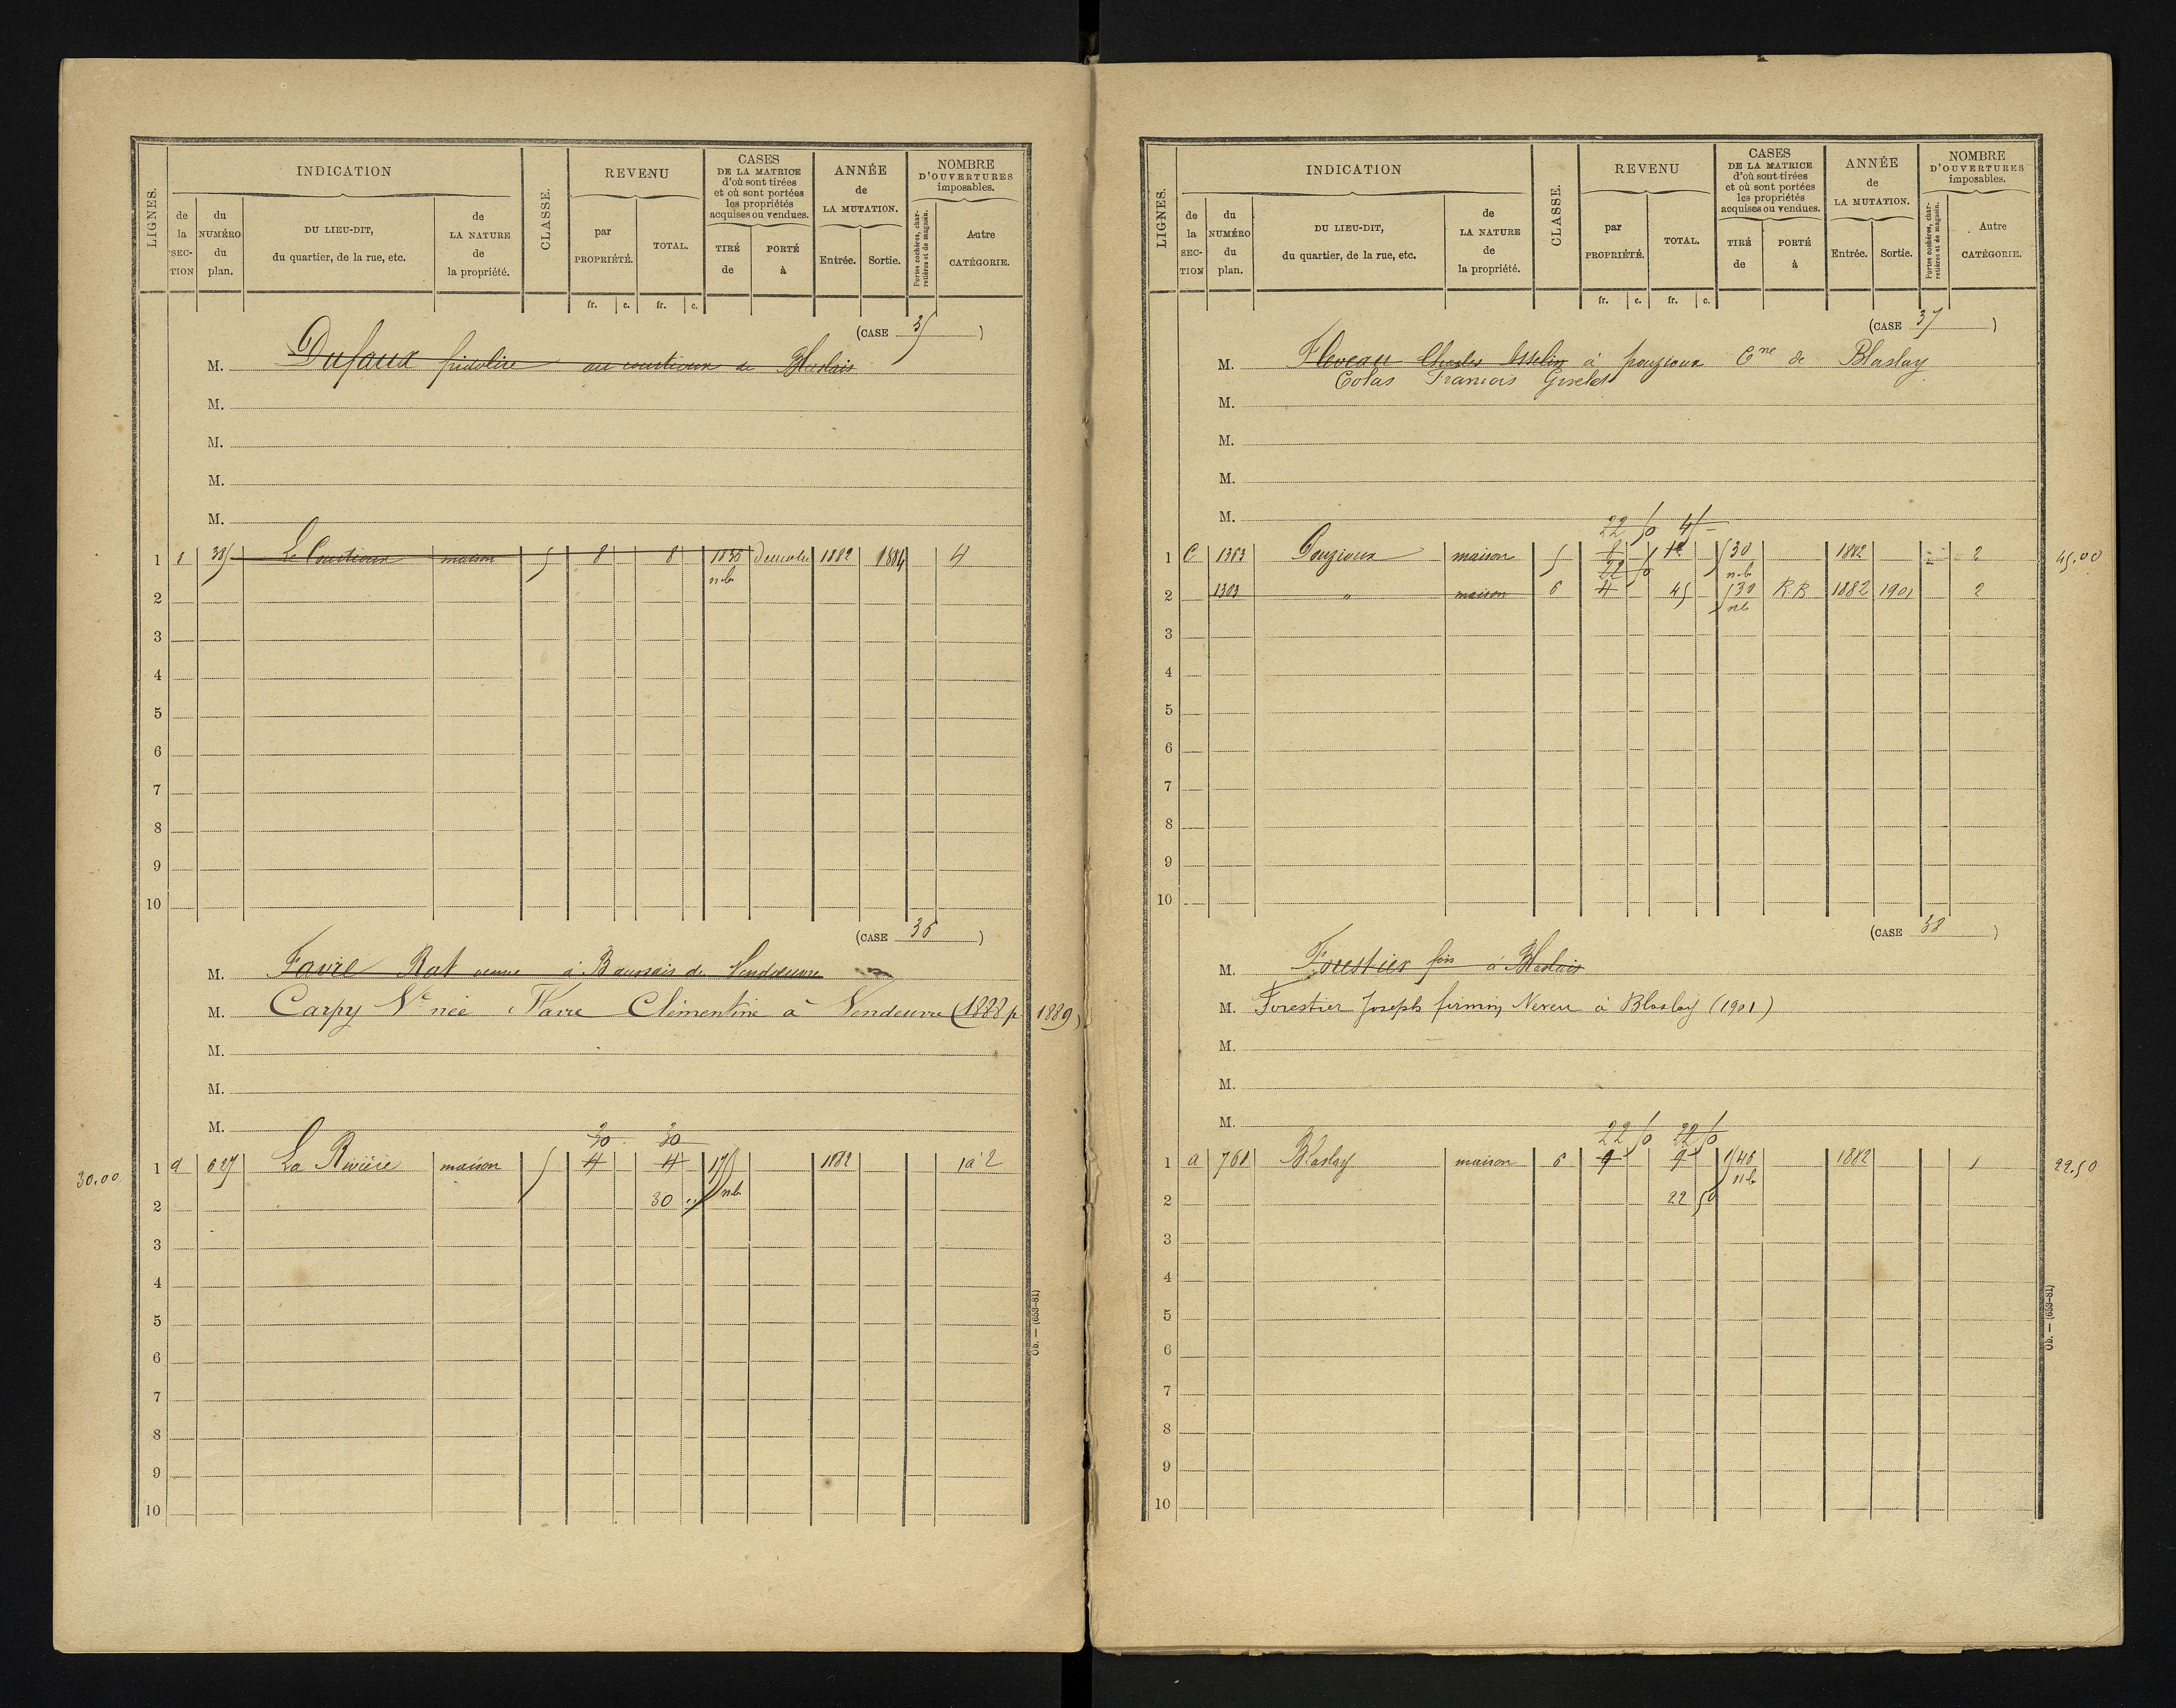 LIGNES.
INDICATION
de la SEC-TION
du NUMÉRO du plan.
DU LIEU-DIT, du quartier, de la rue, etc.
de LA NATURE de la propriété.
CLASSE.
REVENU
par PROPRIÉTÉ.
TOTAL.
CASES DE LA MATRICE d'où sont tirées et où sont portées les propriétés acquises ou vendues.
TIRÉ de
PORTÉ à
ANNÉE de LA MUTATION.
Entrée.
Sortie.
NOMBRE D'OUVERTURES imposables.
Portes cochères, charretières et de magasin.
Autre CATÉGORIE.
fr. c. fr. c.
(CASE 35 )
M. Dufaux au courtioux de Blaslais
M.
M.
M.
M.
1 385 Le Courtioux maison 5 8 8 1835 Démolie 1882 1884 4
nb
2
3
4
5
6
7
8
9
10
(CASE 36 )
M. Favre Rat veuve à Baussais de Vendeuvre
M. Carpy Ve née Favre Clémentine à Vendeuvre (1888 p 1889)
M.
M.
M.
30 30
30.00 1 d 627 La Rivière maison 5 4 4 175 1882 1 à 2
2 30 nb
3
4
5
6
7
8
9
10
Ob. — (653-81)
LIGNES.
INDICATION
de la SEC-TION
du NUMÉRO du plan.
DU LIEU-DIT, du quartier, de la rue, etc.
de LA NATURE de la propriété.
CLASSE.
REVENU
par PROPRIÉTÉ.
TOTAL.
CASES DE LA MATRICE d'où sont tirées et où sont portées les propriétés acquises ou vendues.
TIRÉ de
PORTÉ à
ANNÉE de LA MUTATION.
Entrée.
Sortie.
NOMBRE D'OUVERTURES imposables.
Portes cochères, charretières et de magasin.
Autre CATÉGORIE.
fr. c. fr. c.
(CASE 37 )
M. Floveau Charles Asselin à pouzioux Cne de Blaslay
Colas François Giselet
M.
M.
M.
M.
22 50 45
1 C 1303 Pouzioux maison 5 12 530 1882 2 45.00
22 50 nb
2 1303 " maison 6 4 45 530 R.B 1882 1901 2
nb
3
4
5
6
7
8
9
10
(CASE 38 )
M. Forestier fois à Blaslais
M. Forestier Joseph firmin Neveu à Blaslay (1901)
M.
M.
M.
22 50 22 50
1 a 761 Blaslay maison 6 9 9 546 1882 1 22.50
nb
2 22 50
3
4
5
6
7
8
9
10
Ob. — (653-81)